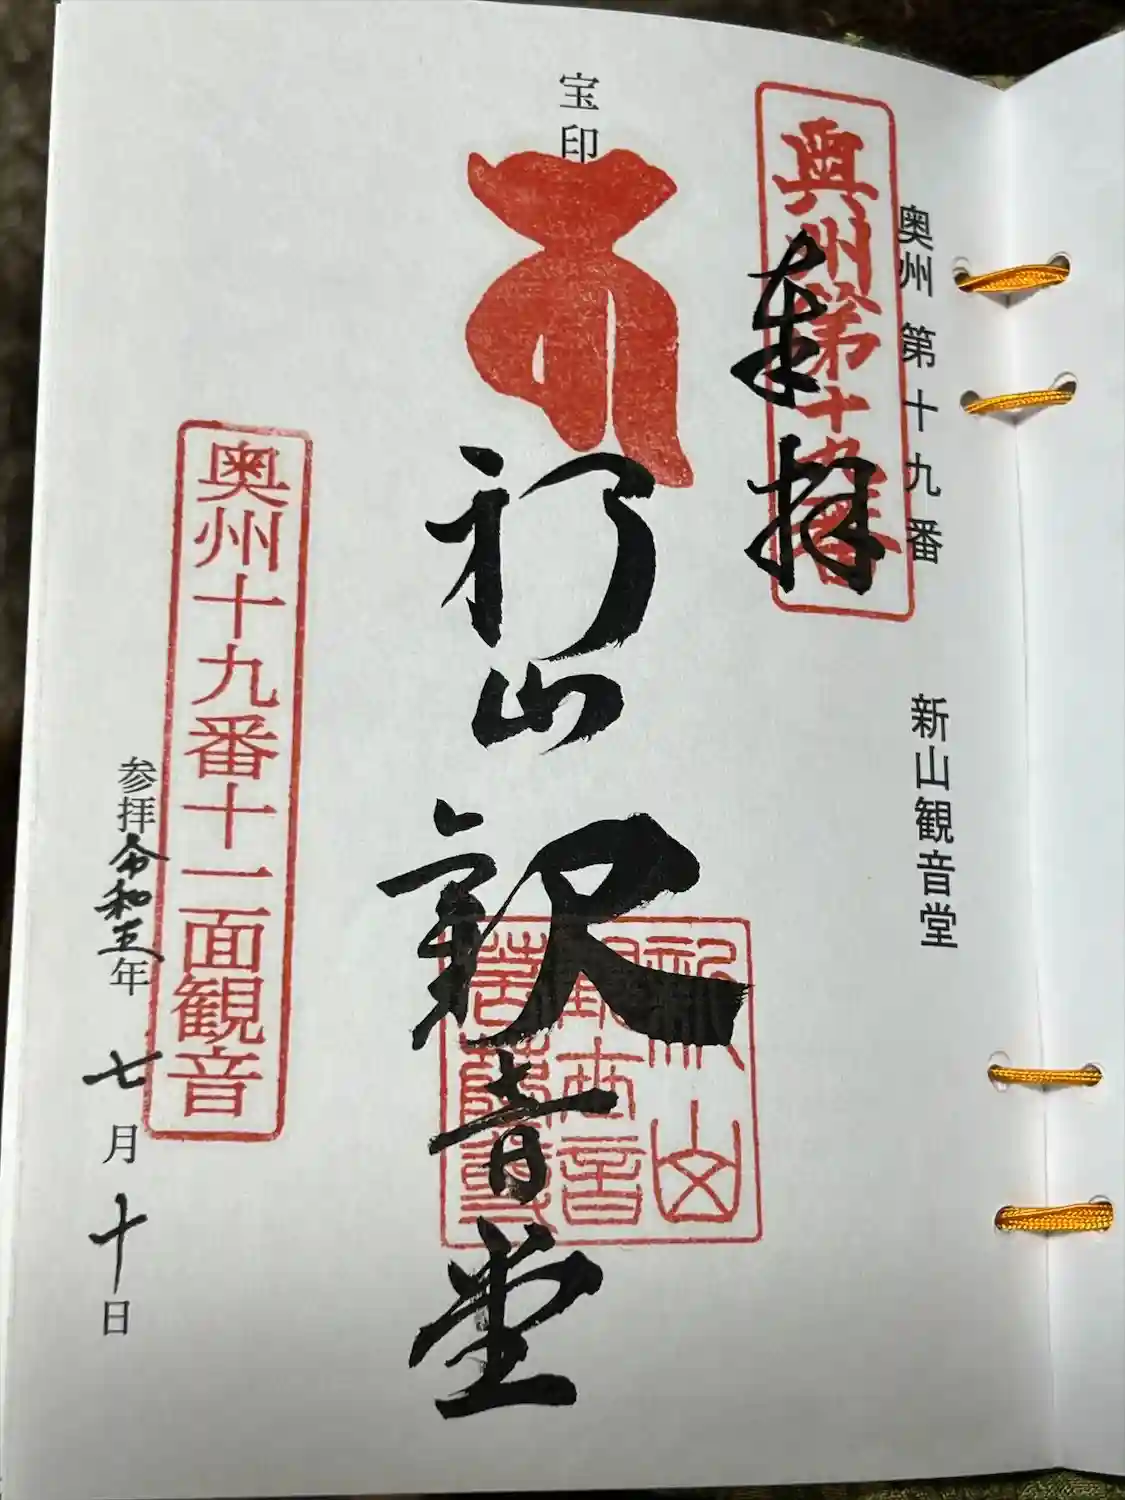 奥州 第十九番 新山観音堂
奥州第十九番
奉拝
宝印
新山観音堂
奥州十九番十一面観音
参拝令和五年七月十日